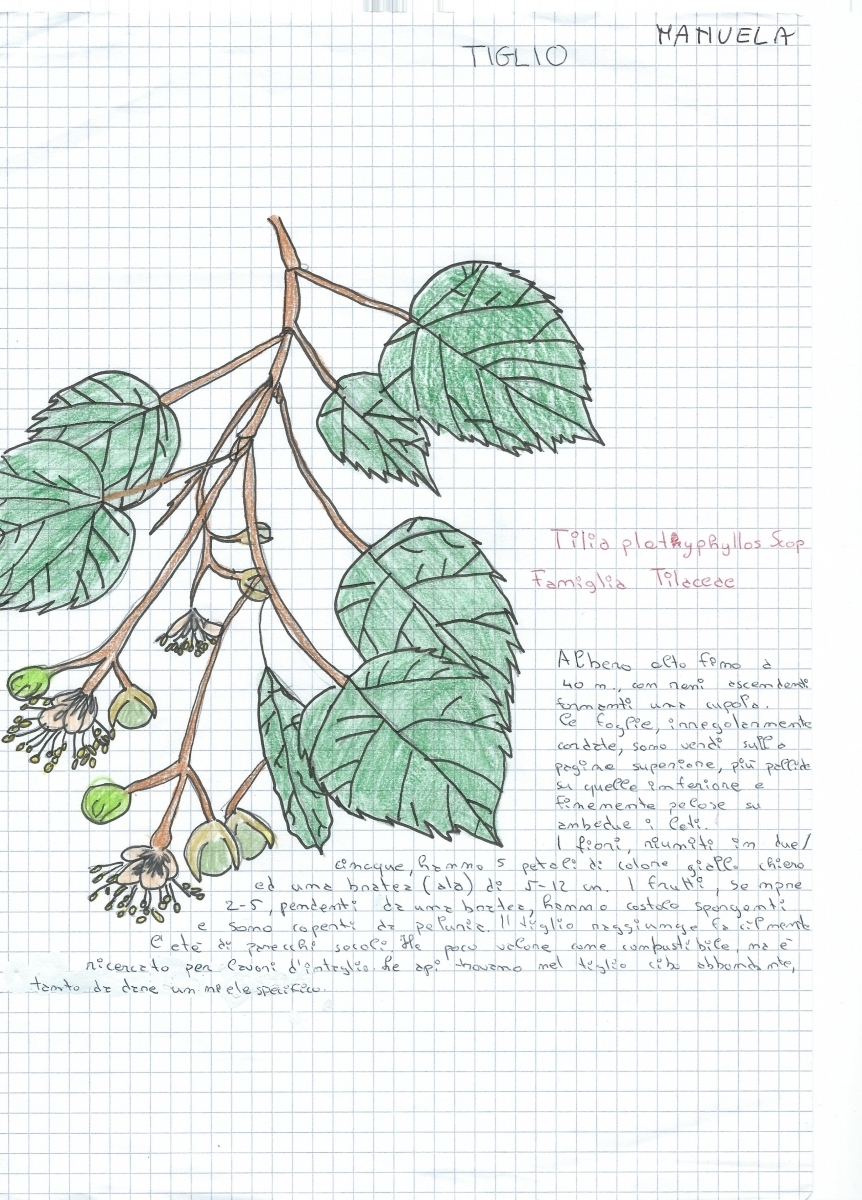 MANUELA
TIGLIO
Tilia plathyphyllos Scop
Famiglia Tilaceae
Albero alto fino a
40 m., con rami ascendenti
formanti una cupola.
Le foglie, irregolarmente
cordate, sono verdi sulla
pagina superiore, più pallide
su quella inferiore e
finemente pelose su
ambedue i lati.
I fiori, riuniti in due/
cinaque, hanno 5 petali di colore giallo chiero
ed una brattea (ala) di 5-12 cm. I frutti, sempre
2-5, pendenti da una brattea, hanno costole sporgenti
e sono coperti da peluria. Il tiglio raggiunge facilmente
l'età di parecchi secoli. Ha poco valore come combustibile, ma è
ricercato per lavori d'intaglio. Le api trovano nel tiglio cibo abbondante,
tanto da dare un miele specifico.